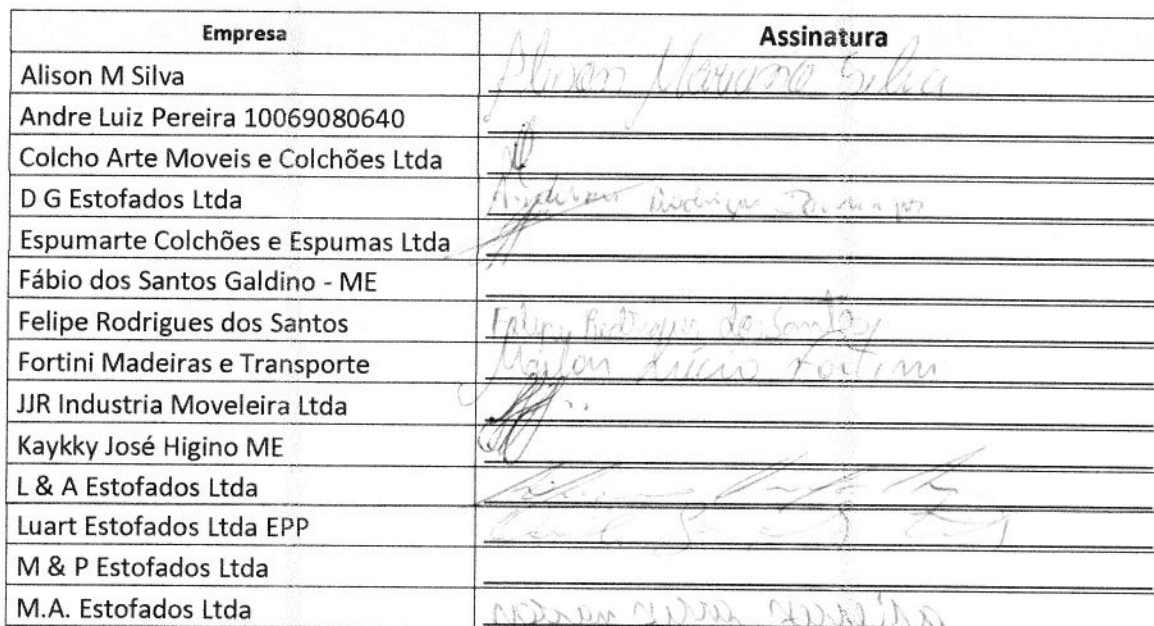 Empresa Assinatura
Alison M Silva Alison Mariano Silva
Andre Luiz Pereira 10069080640
Colcho Arte Moveis e Colchões Ltda
D G Estofados Ltda
Espumarte Colchões e Espumas Ltda
Fábio dos Santos Galdino - ME
Felipe Rodrigues dos Santos Felipe Rodrigues dos Santos
Fortini Madeiras e Transporte Marlon Lúcio Fortini
JJR Industria Moveleira Ltda
Kaykky José Higino ME
L & A Estofados Ltda
Luart Estofados Ltda EPP
M & P Estofados Ltda
M.A. Estofados Ltda